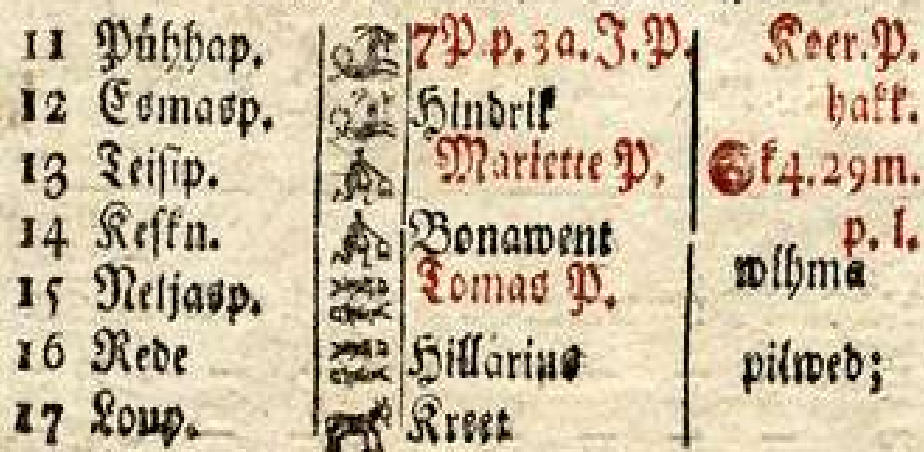 11 Pühhap. 7P. p. 3a. J. P. Koer. P.
12 Esmasp. Hindrik hakk.
13 Teisip. Mariette P. k4. 29m.
14 Keskn. Bonawent p. l.
15 Neljasp. Tomas P. wihma
16 Rede Hillarius pilwed;
17 Loup. Kreet